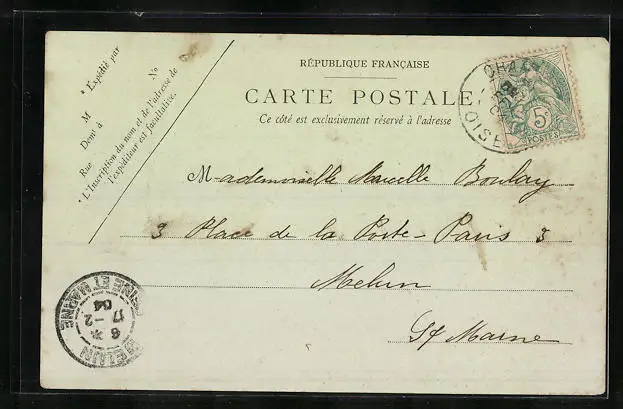 * Expédié par
M
Dem.t à
Rue
N.o
* L'Inscription du nom et de l'adresse de
l'expéditeur est facultative.
RÉPUBLIQUE FRANÇAISE
CARTE POSTALE
Ce côté est exclusivement réservé à l'adresse
OISE
5c
POSTES
Mademoiselle Marcelle Boulay
3 Place de la Porte-Paris 3
Melun
S/Marne
MELUN
6 *
17 - 2
04
SEINE ET MARNE